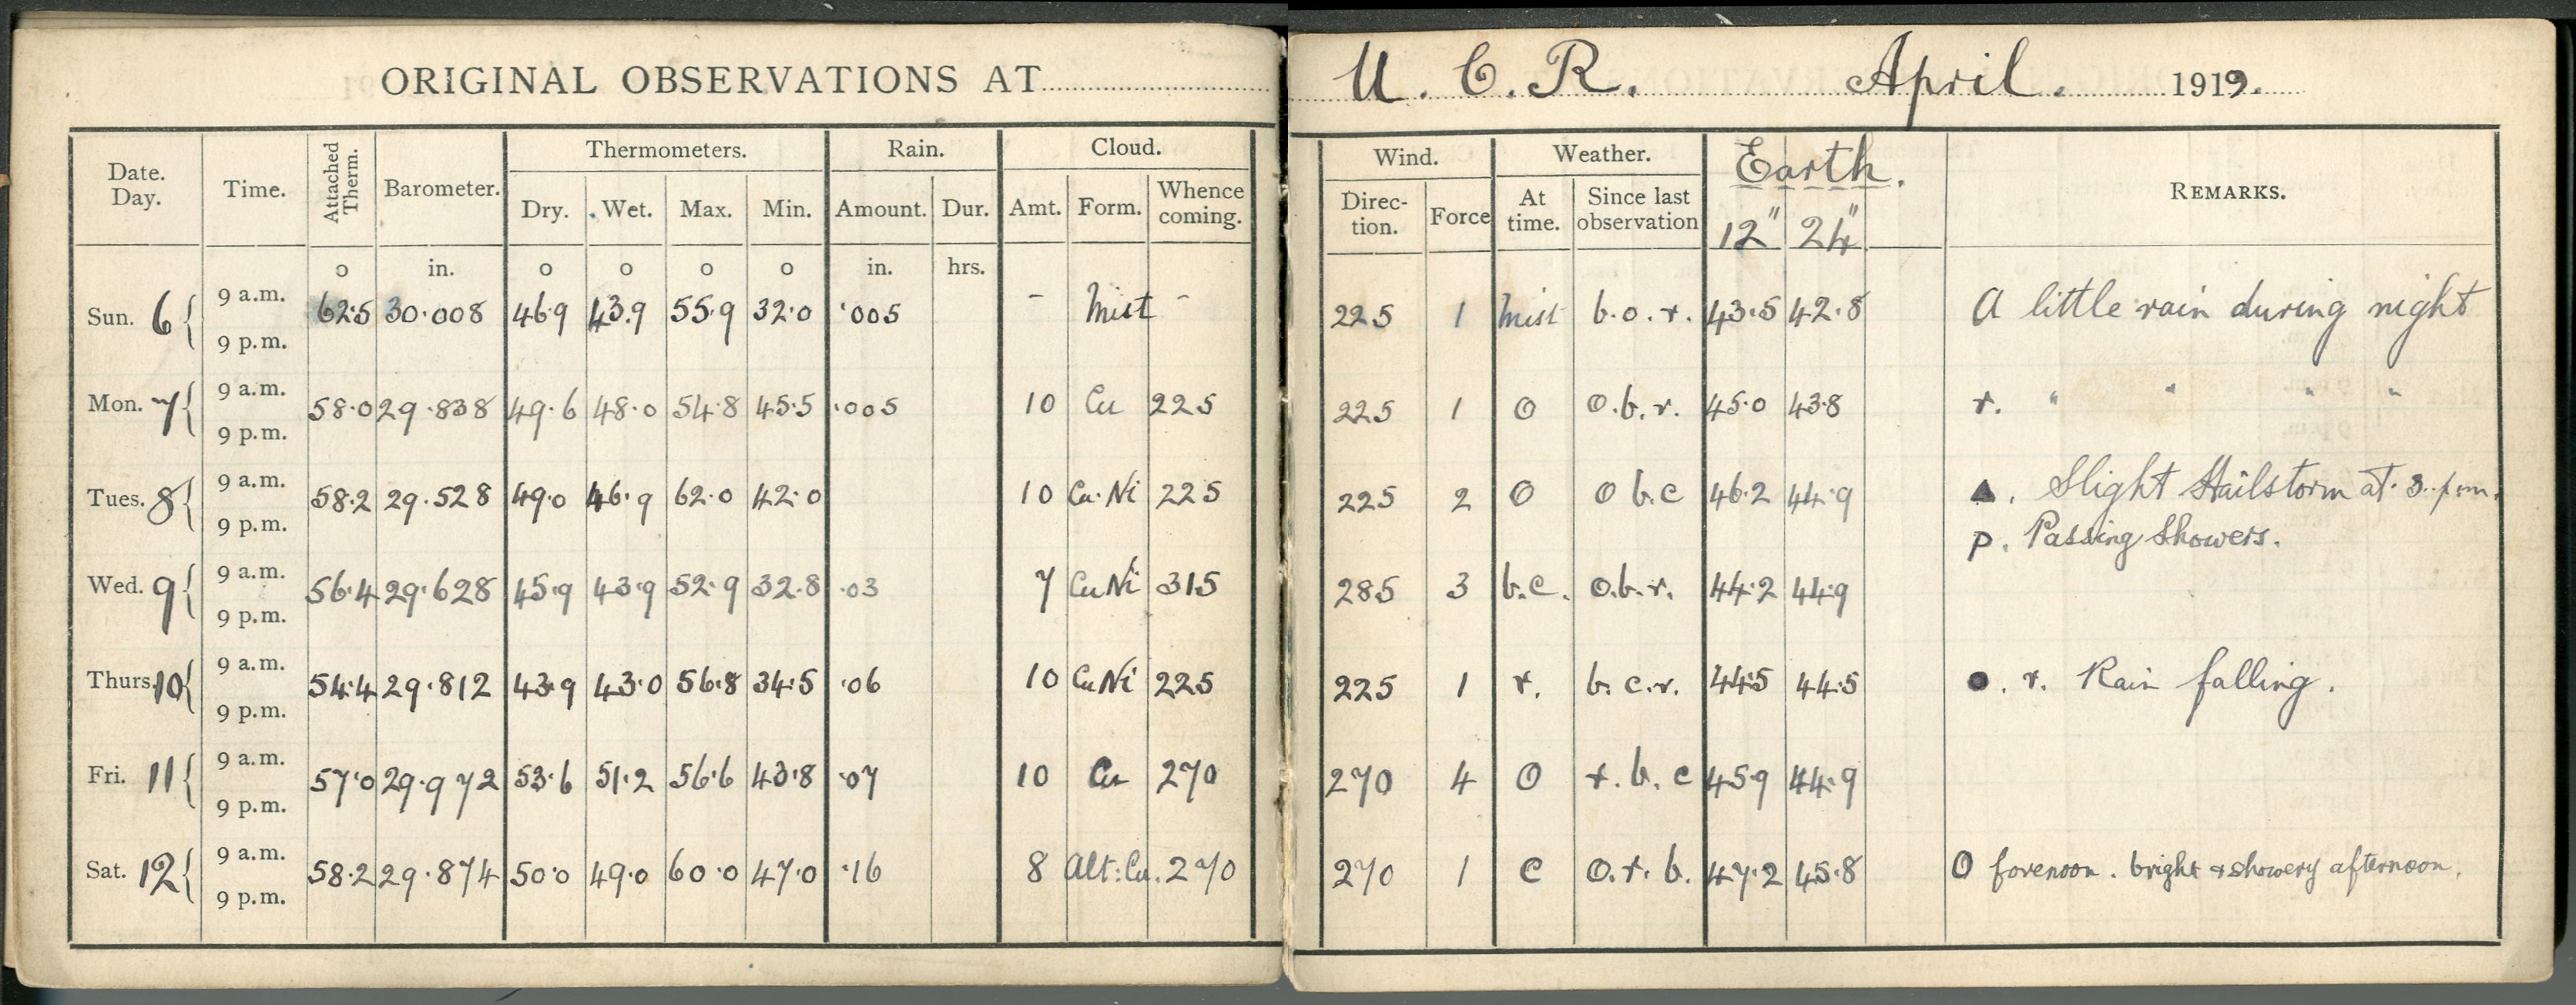 ORIGINAL OBSERVATIONS AT U. C. R. April. 1919.
Date. Day. Time. Attached Therm. Barometer. Thermometers. Rain. Cloud. Wind. Weather. Earth. REMARKS.
Dry. Wet. Max. Min. Amount. Dur. Amt. Form. Whence coming. Direc- tion. Force At time. Since last observation 12" 24"
o in. o o o o in. hrs.
Sun. 6 9 a.m. 62.5 30.008 46.9 43.9 55.9 32.0 .005 - Mist - 225 1 Mist b.o.r. 43.5 42.8 A little rain during night
9 p.m.
Mon. 7 9 a.m. 58.0 29.838 49.6 48.0 54.8 45.5 .005 10 Cu 225 225 1 O O.b.r. 45.0 43.8 r. " " " "
9 p.m.
Tues. 8 9 a.m. 58.2 29.528 49.0 46.9 62.0 42.0 10 Cu.Ni 225 225 2 O O b.c 46.2 44.9 ▲. Slight Hailstorm at 3.p.m.
9 p.m. p. Passing Showers.
Wed. 9 9 a.m. 56.4 29.628 45.9 43.9 52.9 32.8 .03 7 CuNi 315 285 3 b.c. O.b.r. 44.2 44.9
9 p.m.
Thurs. 10 9 a.m. 54.4 29.812 43.9 43.0 56.8 34.5 .06 10 CuNi 225 225 1 r. b.c.r. 44.5 44.5 ●. r. Rain falling.
9 p.m.
Fri. 11 9 a.m. 57.0 29.972 53.6 51.2 56.6 43.8 .07 10 Cu 270 270 4 O r.b.c 45.9 44.9
9 p.m.
Sat. 12 9 a.m. 58.2 29.874 50.0 49.0 60.0 47.0 .16 8 Alt:Cu. 270 270 1 C O.r.b. 47.2 45.8 O forenoon. bright & showery afternoon.
9 p.m.